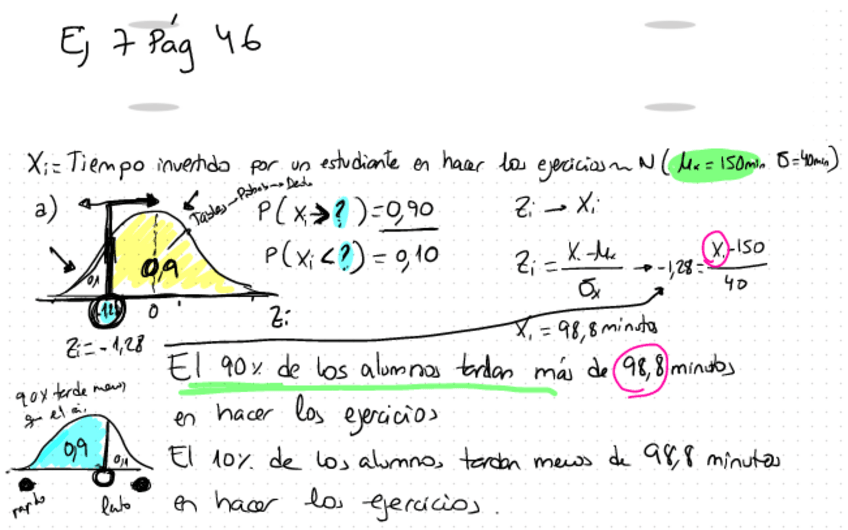 Ej 7 Pág 46
Xi = Tiempo invertido por un estudiante en hacer los ejercicios ~ N ( μx = 150min σ = 40min)
a)
Tablas → Probab → Dentro
0,1
0,9
-1,28
0
Zi
Zi = -1,28
P( Xi > ? ) = 0,90
P( Xi < ? ) = 0,10
Zi → Xi
Zi = X - μx / σx → -1,28 = Xi - 150 / 40
Xi = 98,8 minutos
El 90% de los alumnos tardan más de 98,8 minutos
en hacer los ejercicios
El 10% de los alumnos tardan menos de 98,8 minutos
en hacer los ejercicios.
90% tarde menos
que el
0,9
0,1
rápido
lento